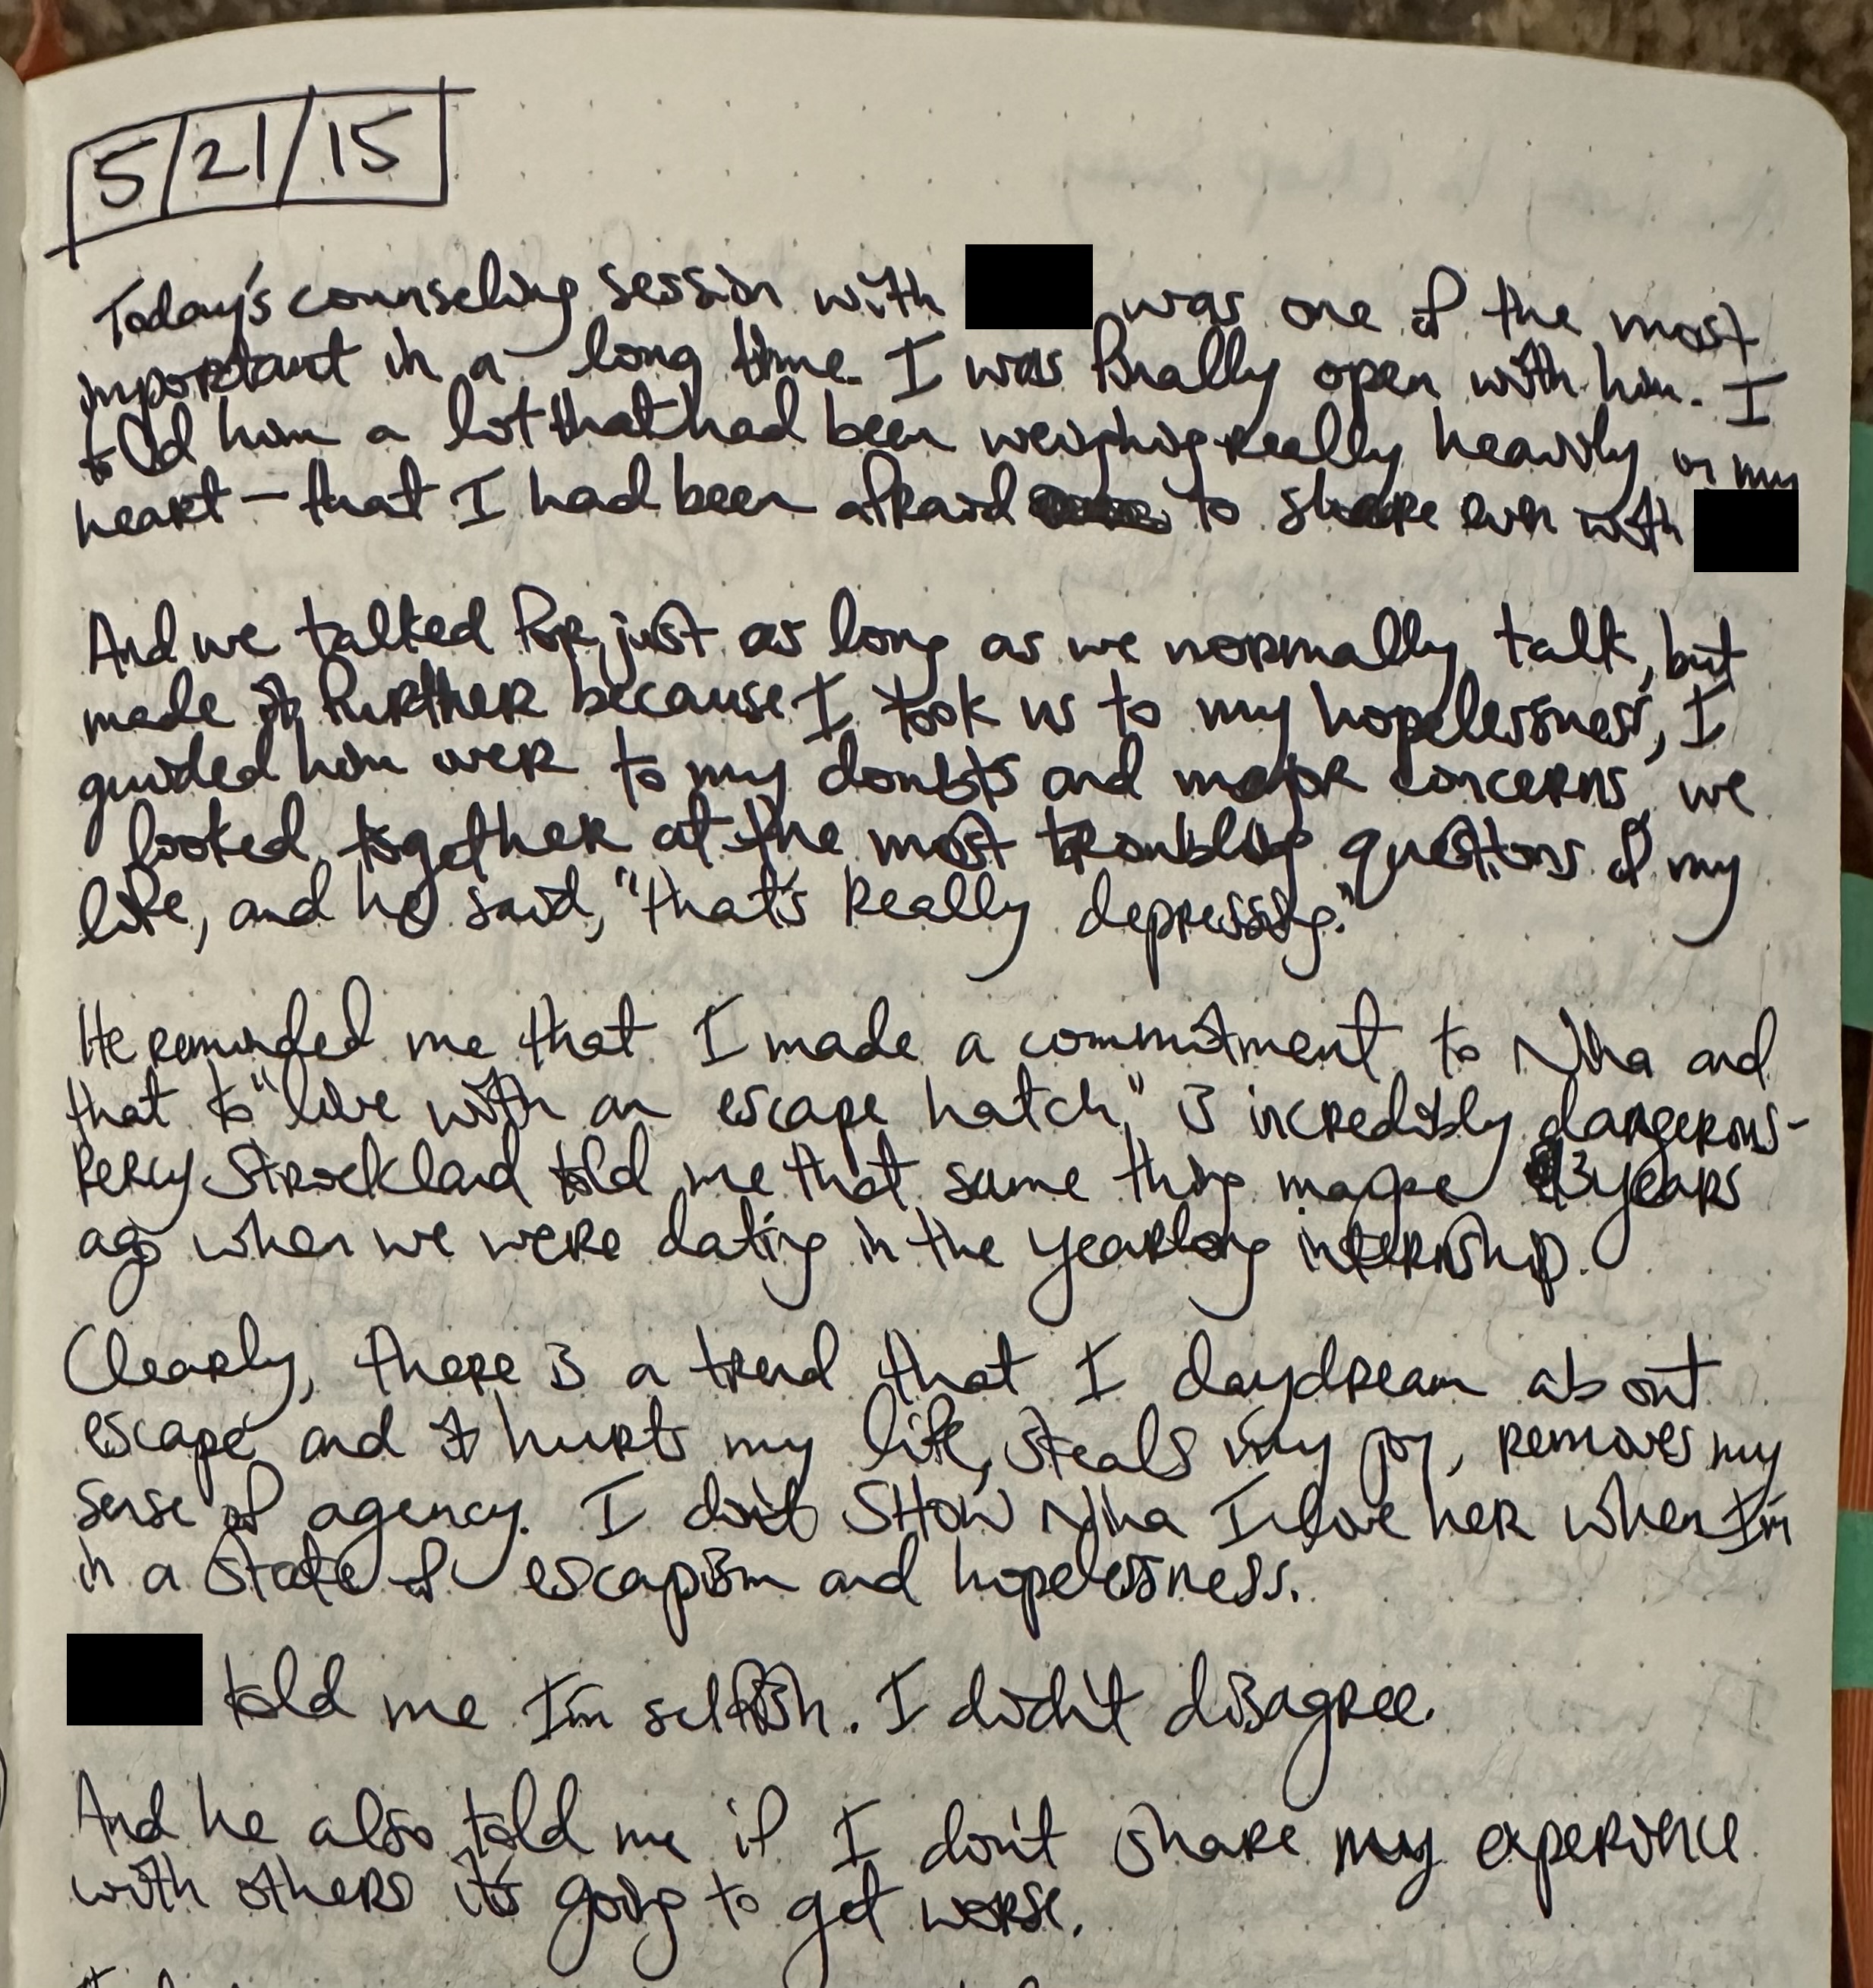 5/21/15
Today's counseling session with was one of the most
important in a long time. I was finally open with him. I
told him a lot that had been weighing really heavily on my
heart — that I had been afraid to share even with
And we talked for just as long as we normally talk, but
made it further because I took us to my hopelessness, I
guided him over to my doubts and major concerns, we
looked together at the most troubling questions of my
life, and he said, "that's really depressing."
He reminded me that I made a commitment to Nina and
that to "live with an escape hatch" is incredibly dangerous-
Percy Strickland told me that same thing maybe 3 years
ago when we were dating in the yearlong internship.
Clearly, there is a trend that I daydream about
escape and it hurts my life, steals my joy, removes my
sense of agency. I don't SHOW Nina I love her when I'm
in a state of escapism and hopelessness.
told me I'm selfish. I didn't disagree.
And he also told me if I don't share my experience
with others it's going to get worse.